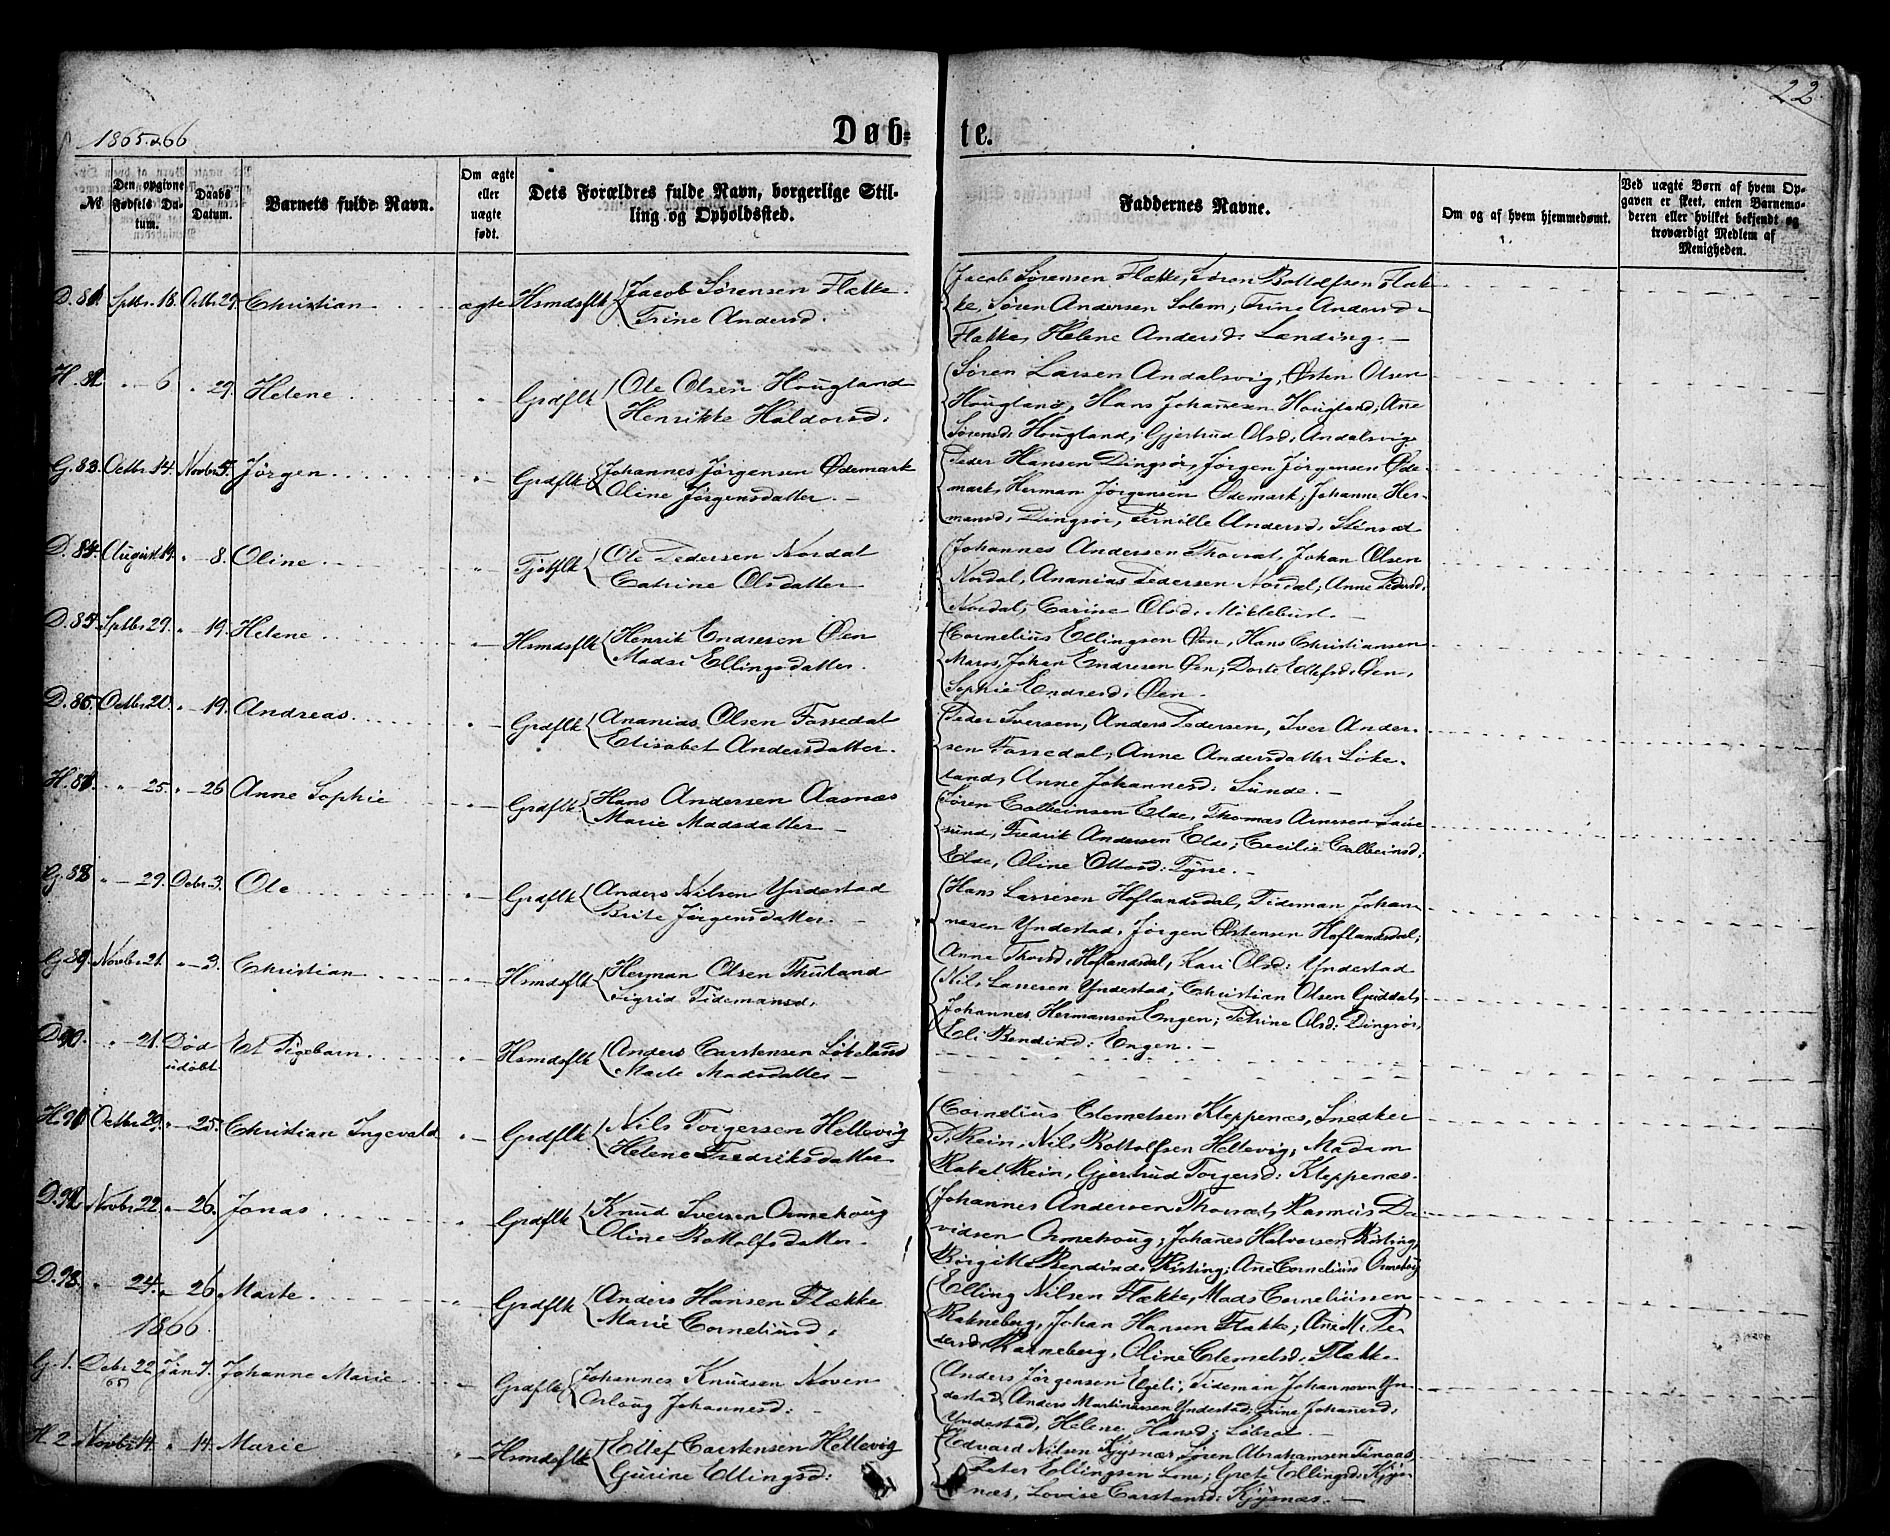 22
1865 & 66
Døb= te.
№
Den opgivne Fødsels Datum.
Daabs Datum.
Barnets fulde Navn.
Om ægte eller uægte født.
Dets Forældres fulde Navn, borgerlige Stilling og Opholdssted.
Faddernes Navne.
Om og af hvem hjemmedømt.
Ved uægte Børn af hvem Opgaven er skeet, enten Barnemoderen eller hvilket bekjendt og troværdigt Medlem af Menigheden.
D. 81. Sptbr. 18. Octbr. 29. Christian ægte Hsmdsflk Jacob Sørensen Flække
Trine Andersd.
Jacob Sørensen Flække, Søren Bottolfsen Flæk-
ke, Søren Andersen Solem, Trine Andersd.
Flække, Helene Andersd: Landing. —
H. 82 " — 6 " 29. Helene Grdflk Ole Olsen Hougland
Henrikke Haldorsd:
Søren Larsen Andalsvig, Østen Olsen
Hougland, Hans Johanesen Hougland, Ane
Sørensd: Hougland; Gjertrud Olsd: Andalsvig.
G. 83. Octbr. 14. Novbr. 5. Jørgen Grdflk Johannes Jørgensen Ødemark
Oline Jørgensdatter. —
Peder Hansen Dingsør, Jørgen Jørgensen Øde-
mark, Herman Jørgensen Ødemark, Johanne Her-
mansd: Dingsør, Pernille Andersd:
D. 84. August 19. " — 8. Oline Tjstflk Ole Pedersen Nordal
Catrine Olsdatter
Johannes Andersen Johan Olsen
Nordal, Ananias Pedersen Nordal; Anne Pedersd:
Nordal; Carine Olsd: Møklebust. —
D. 85. Sptbr. 29. " — 19. Helene Hsmdsflk Henrik Endresen Øen
Madsi Ellingsdatter.
Cornelius Ellingsen Øen, Hans Christiansen
Johan Endresen Øen; Dorte Edlefsd: Øen,
Sophie Endresd: Øen.
D. 86. Octbr. 20. " — 19. Andreas Grdflk Ananias Olsen Fossedal
Elisabet Andersdatter.
Peder Iversen, Anders Pedersen, Iver Ander-
sen Fossedal; Anne Andersdatter Løke-
land, Anne Johannesd: Sunde. —
H. 87. " — 25. " — 26 Anne Sophie Grdflk Hans Andersen Aasnæs
Marie Madsdatter —
Søren Colbeinsen Elde, Thomas Arnesen
sund, Fredrik Andersen Elde; Cecilie Colbeinsd:
Elde, Oline Ottosd: —
G. 88 " — 29. Debr. 3. Ole Grdflk Anders Nilsen Yndestad
Brite Jørgensdatter. —
Hans Larssen Hoflandsdal, Tideman Johan-
nesen Yndestad, Jørgen Østensen Hoflandsdal;
Anne Thorsd: Hoflandsdal, Kari Olsd: Yndestad
G. 89. Novbr. 21. " — 3. Christian Hsmdsflk Herman Olsen Thuland
Sigrid Tidemansd.
Nils Larsen Yndestad, Christian Olsen Guddal,
Johannes Hermansen Engen; Petrine Olsd: Dingsør,
Eli Bendixd: Engen. —
D. 90. " 21. Død udøbt Et Pigebarn Hsmdsflk Anders Carstensen Løkeland
Marte Madsdatter —
H. 91 Octbr. 29. " — 25. Christian Ingevald Grdflk Nils Torgersen Hellevig
Helene Fredriksdatter
Cornelius Clemetsen Kleppenæs, Snedker
Rein, Nils Bottolfsen Hellevig; Madam
Rakel Rein, Gjertrud Torgersd: Kleppenæs.
D. 92 Novbr. 22. " — 26. Jonas Grdflk Knud Iversen Ormehoug
Oline Bottolfsdatter.
Johannes Andersen Rasmus Da-
vidsen Ormehoug; Johanes Halvorsen
Birgitte Ane Corneliusd
D. 93. " 24. " — 26 Marte Grdflk Anders Hansen Flække
Marie Corneliusd.
Elling Nilsen Flække, Mads Corneliussen
Rakneberg, Johan Hansen Flække; Ane M. Pe-
dersd: Rakneberg, Oline Clemetsd: Flække
1866
G. 1. Debr. 22 (65) Jan 7. Johanne Marie Grdflk Johannes Knudsen Noven
Johannesd: —
Anders Jørgensen Tideman Johannesen Yn-
destad, Anders Martinussen Yndestad; Trine Johanesd:
Yndestad, Helene Hansd: —
H. 2. Novbr. 14. " 14. Marie Hsmdsflk Edlef Carstensen Hellevig
Gurine Ellingsd:
Edvard Nilsen Kjysnæs, Søren Abrahamsen
Peter Ellingsen Lone; Grete Ellingsd: Kjys-
næs, Lovise Carstensd: Kjysnæs. —